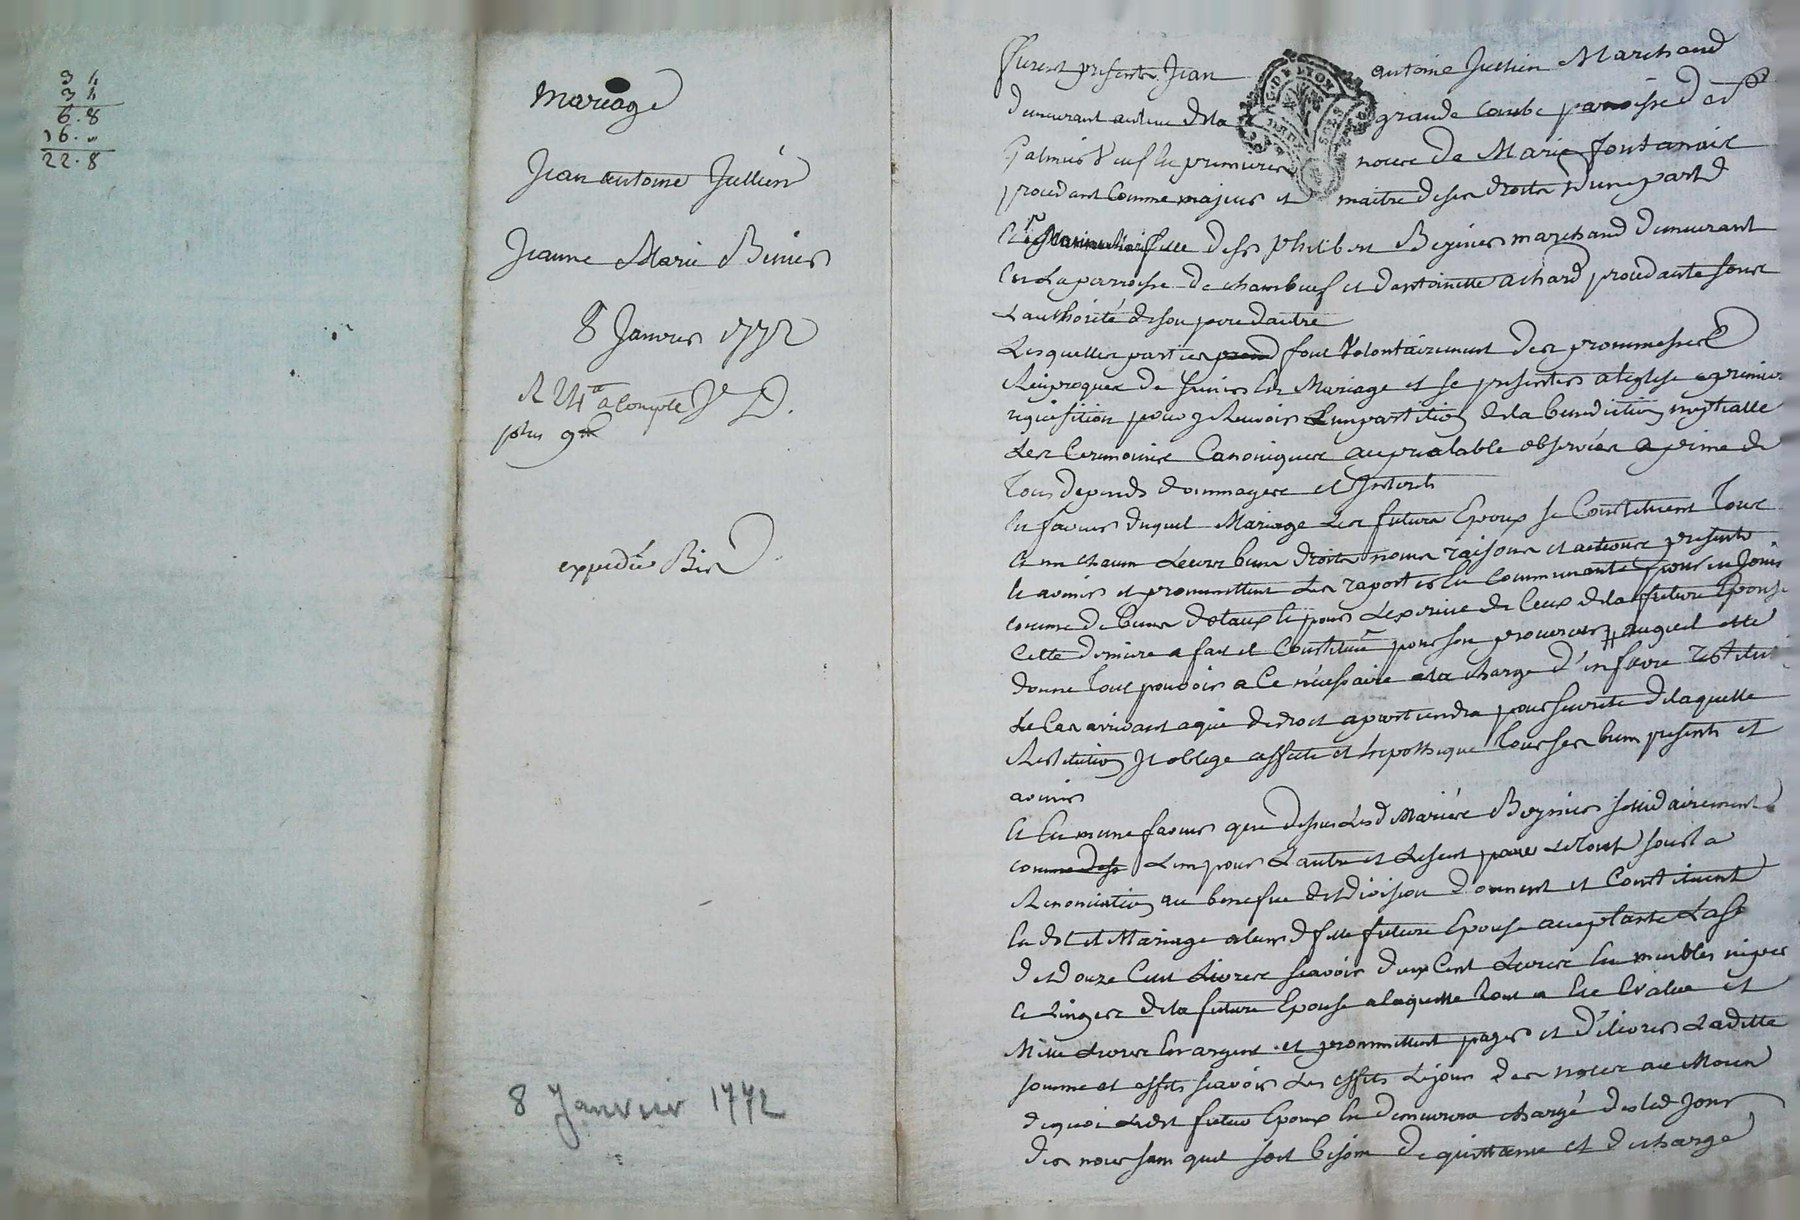 3 4
3 4
6.8
16.
22.8
Mariage
Jean antoine Jullien
Jeanne Marie Binier
8 Janvier 1772
R 24 a Compte
plus 9
expediée
8 Janvier 1772
Furent presents Jean antoine Jullien Marchand
demeurant au lieu de la grande combe paroisse de St
Galmier Veuf en premieres noces de Marie fontanaix
procedant Comme majeur et maitre de ses droits d'une part
fille de Sr philibert Beynier marchand demeurant
En La parroisse de chambœuf et d'antoinette achard procedante sous
L'authorité de son pere d'autre
Lesquelles parties font Volontairement des prommesses
Reciproques de s'unir En Mariage et se presenter a l'eglise a premiere
requisition pour y Recevoir L'impartition de la benediction nuptialle
Les Ceremonies Canoniques au prealable observées a peine de
Tous depends dommages et Interets
En faveur duquel Mariage Les futurs Epoux se Constituent Tous
Et un chacun Leurs biens droits noms raisons et actions presents
Et avenir et prommettent Les raporter En Communauté pour en Jouir
comme de biens dotaux Et pour L'exercice de Ceux de la future Epouse
Cette derniere a fait et Constitué pour son procureur auquel elle
donne Tout pouvoir a Ce nécessaire a la charge d'en faire restitution
Le Cas arrivant a qui de droit apartiendra pour sureté de laquelle
Restitution Il oblige affecte et hipotheque Tous ses biens presents et
avenir
Et En meme faveur que dessus Lesd Mariés Beynier sollidairement
L'un pour L'autre et Lesent pour Le Tout sous La
Renonciation au benefice de division donnent et Constituent
En dot et Mariage a leur d fille future Epouse acceptante La so
de douze Cent Livres scavoir deux Cent Livres En meubles nipes
Et Linges de la future Epouse a laquelle Tout a Eté Evalué et
Mille Livres En argent et prommettent payer et délivrer Laditte
somme et effets scavoir Les effets Le jour des noces au Moien
de quoi Ledit futur Epoux En demeurera chargé des led Jour
des noces sans quil soit besoin de quittance et decharge